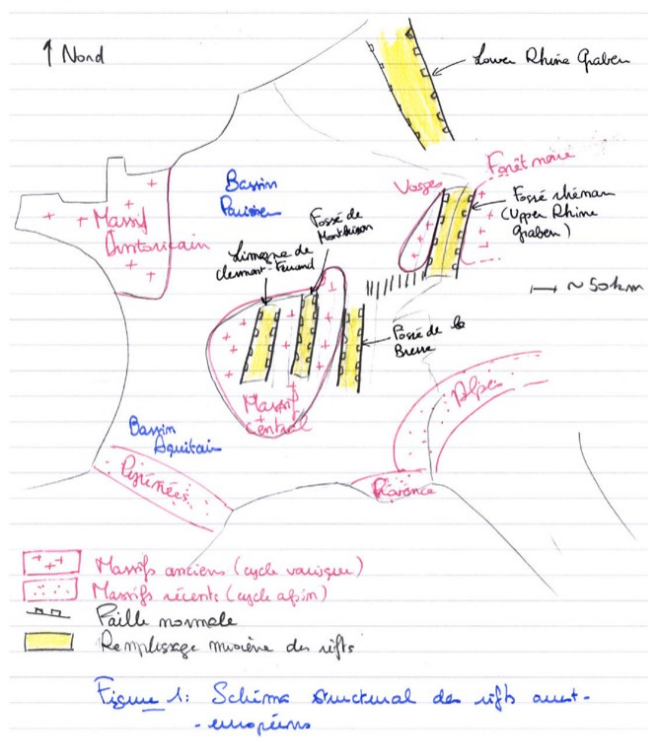 ↑ Nord
Lower Rhine Graben
Forêt noire
Vosges
Fossé rhénan
(Upper Rhine
Graben)
Bassin
Parisien
Massif
Armoricain
Fossé de
Montbrison
Limagne de
Clermont-Ferrand
~ 50 km
Fossé de la
Bresse
Alpes
Massif
Central
Bassin
Aquitain
Pyrénées
Provence
Massifs anciens (cycle varisque)
Massifs récents (cycle alpin)
Faille normale
Remplissage miocène des rifts
Figure 1: Schéma structural des rifts ouest-
-européens